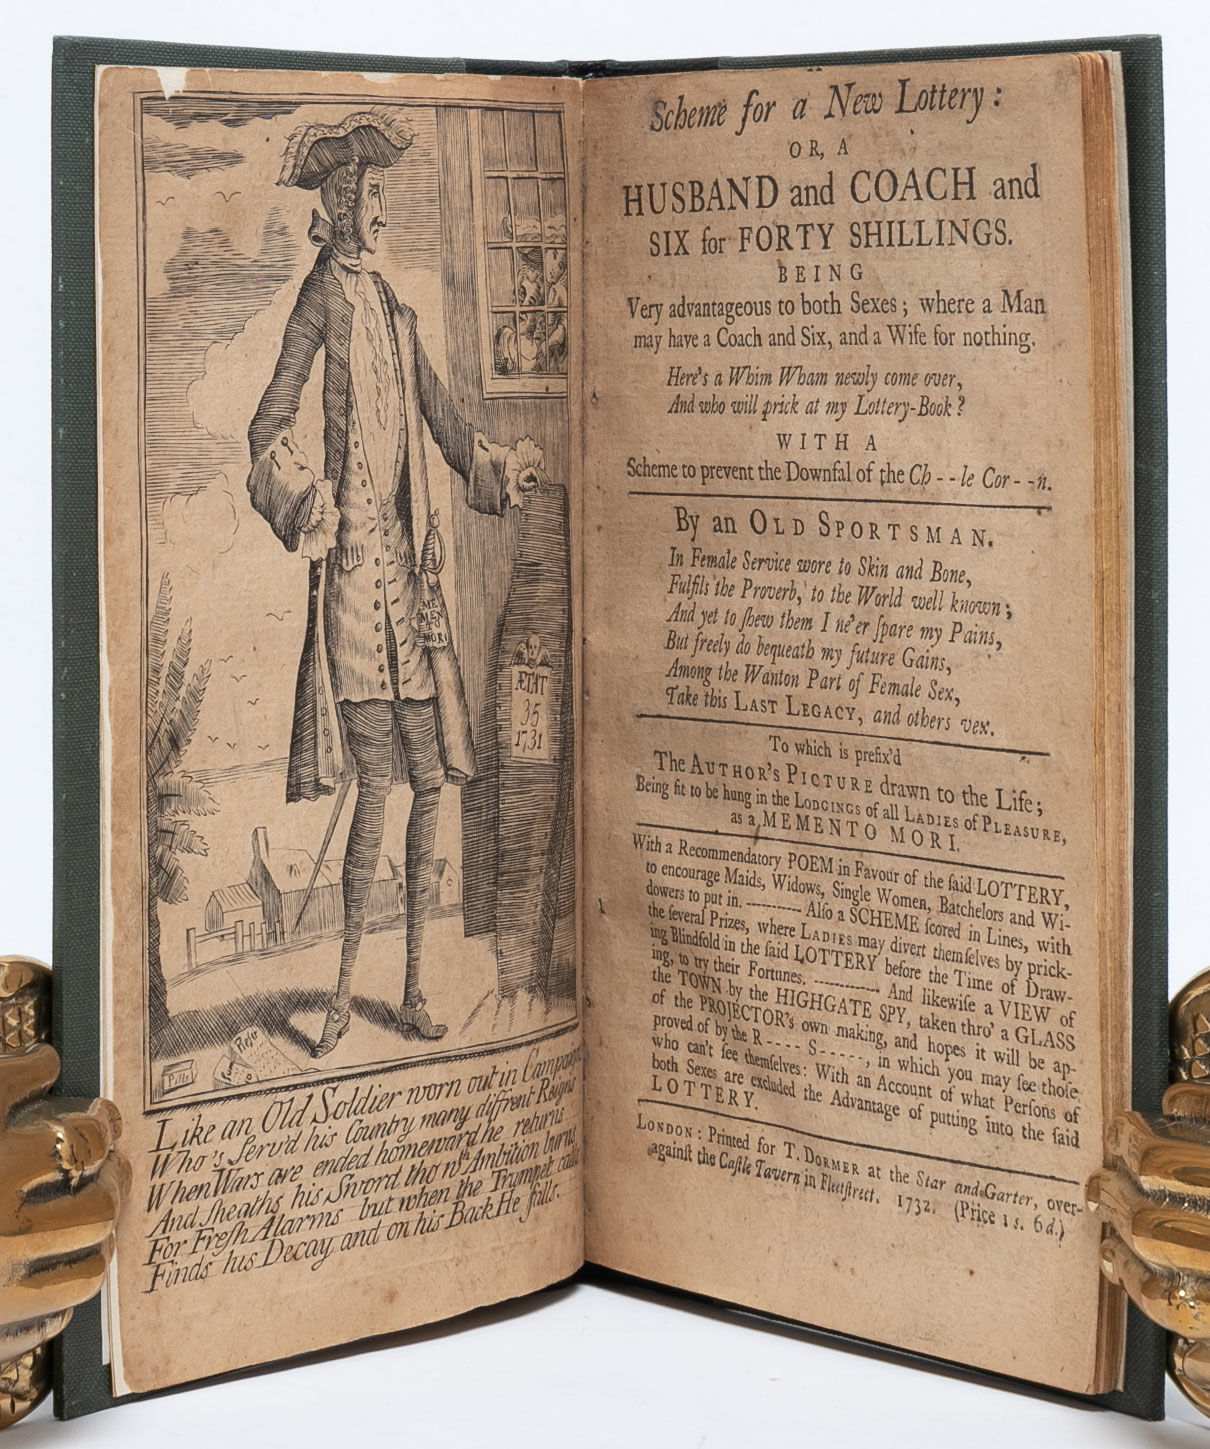 ME
MEN
TO
MORI
ÆTAT
35
1731
Pills
Like an Old Soldier worn out in Campaign
Who's Serv'd his Country many diffrent Reigns
When Wars are ended homeward he returns
And sheaths his Sword tho nth Ambition burns
For Fresh Alarms but when the Trumpet calls
Finds his Decay and on his Back He falls.
Scheme for a New Lottery:
OR, A
HUSBAND and COACH and
SIX for FORTY SHILLINGS.
BEING
Very advantageous to both Sexes; where a Man
may have a Coach and Six, and a Wife for nothing.
Here's a Whim Wham newly come over,
And who will prick at my Lottery-Book?
WITH A
Scheme to prevent the Downfal of the Ch--le Cor--n.
By an OLD SPORTSMAN.
In Female Service wore to Skin and Bone,
Fulfils the Proverb, to the World well known;
And yet to ſhew them I ne'er ſpare my Pains,
But freely do bequeath my future Gains,
Among the Wanton Part of Female Sex,
Take this LAST LEGACY, and others vex.
To which is prefix'd
The AUTHOR'S PICTURE drawn to the Life;
Being fit to be hung in the LODGINGS of all LADIES of PLEASURE,
as a MEMENTO MORI.
With a Recommendatory POEM in Favour of the ſaid LOTTERY,
to encourage Maids, Widows, Single Women, Batchelors and Wi-
dowers to put in. ---------- Alſo a SCHEME ſcored in Lines, with
the ſeveral Prizes, where LADIES may divert themſelves by prick-
ing Blindfold in the ſaid LOTTERY before the Time of Draw-
ing, to try their Fortunes. ------------ And likewiſe a VIEW of
the TOWN by the HIGHGATE SPY, taken thro' a GLASS
of the PROJECTOR's own making, and hopes it will be ap-
proved of by the R---- S-----, in which you may ſee thoſe
who can't ſee themſelves: With an Account of what Perſons of
both Sexes are excluded the Advantage of putting into the ſaid
LOTTERY.
LONDON: Printed for T. DORMER at the Star and Garter, over-
againſt the Caſtle Tavern in Fleetſtreet. 1732. (Price 1 s. 6d.)